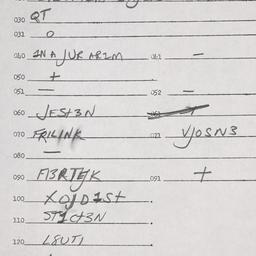 030 QT
031 O
040 INAJUR ARIM 041 —
050 +
051 — 052 —
060 JEST3N
070 FRILINK 071 VJOSN3
080 —
090 FI3RTEJK 091 +
100 XOJD1St
110 ST1Ct3N
120 L8UTI